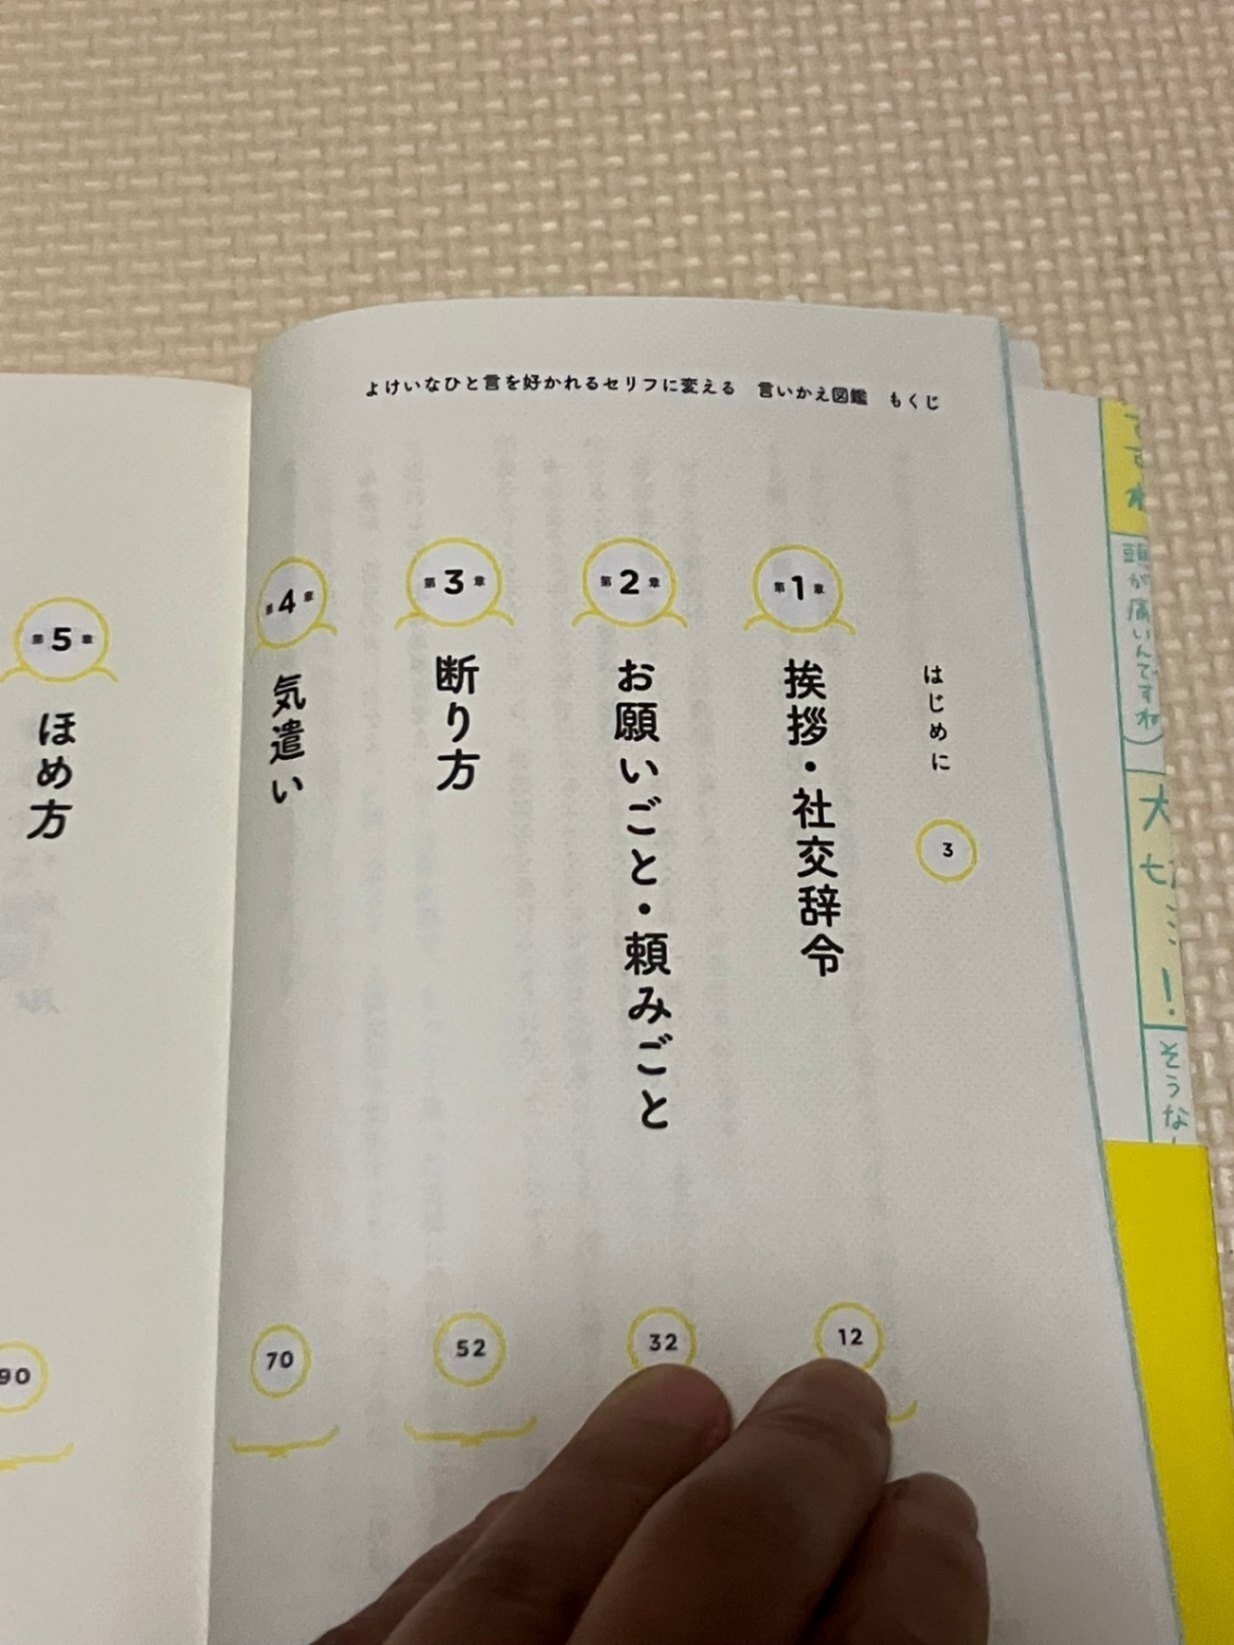 よけいなひと言を好かれるセリフに変える 言いかえ図鑑 もくじ
はじめに
3
第1章
挨拶・社交辞令
12
第2章
お願いごと・頼みごと
32
第3章
断り方
52
第4章
気遣い
70
第5章
ほめ方
90
ですね
頭が痛いんですね)
大
!
そうな